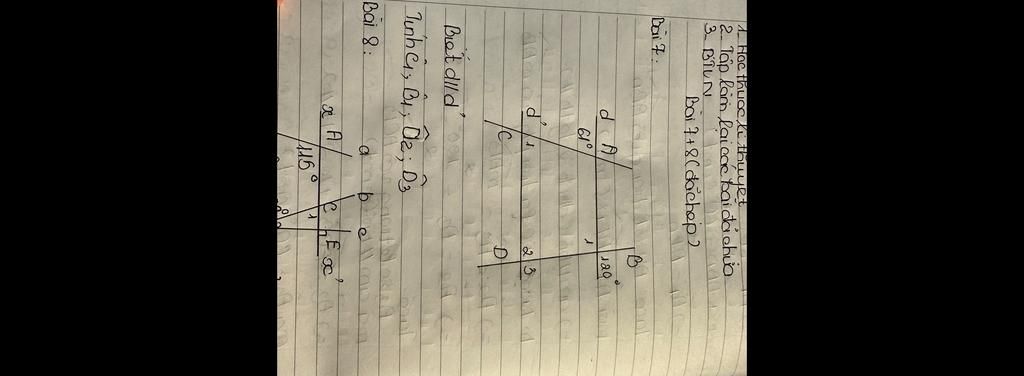 1. Học thuộc lí thuyết
2. Tập làm lại các bài đã chữa
3. BTVN
Bài 7+8 (đã chép)
Bài 7:
d A B
61° 1 120°
d' 1 2 3
C D
Biết d//d'
Tính Ĉ1; B̂1; D̂2; D̂3
Bài 8:
a b c
x A C E x'
115° 1